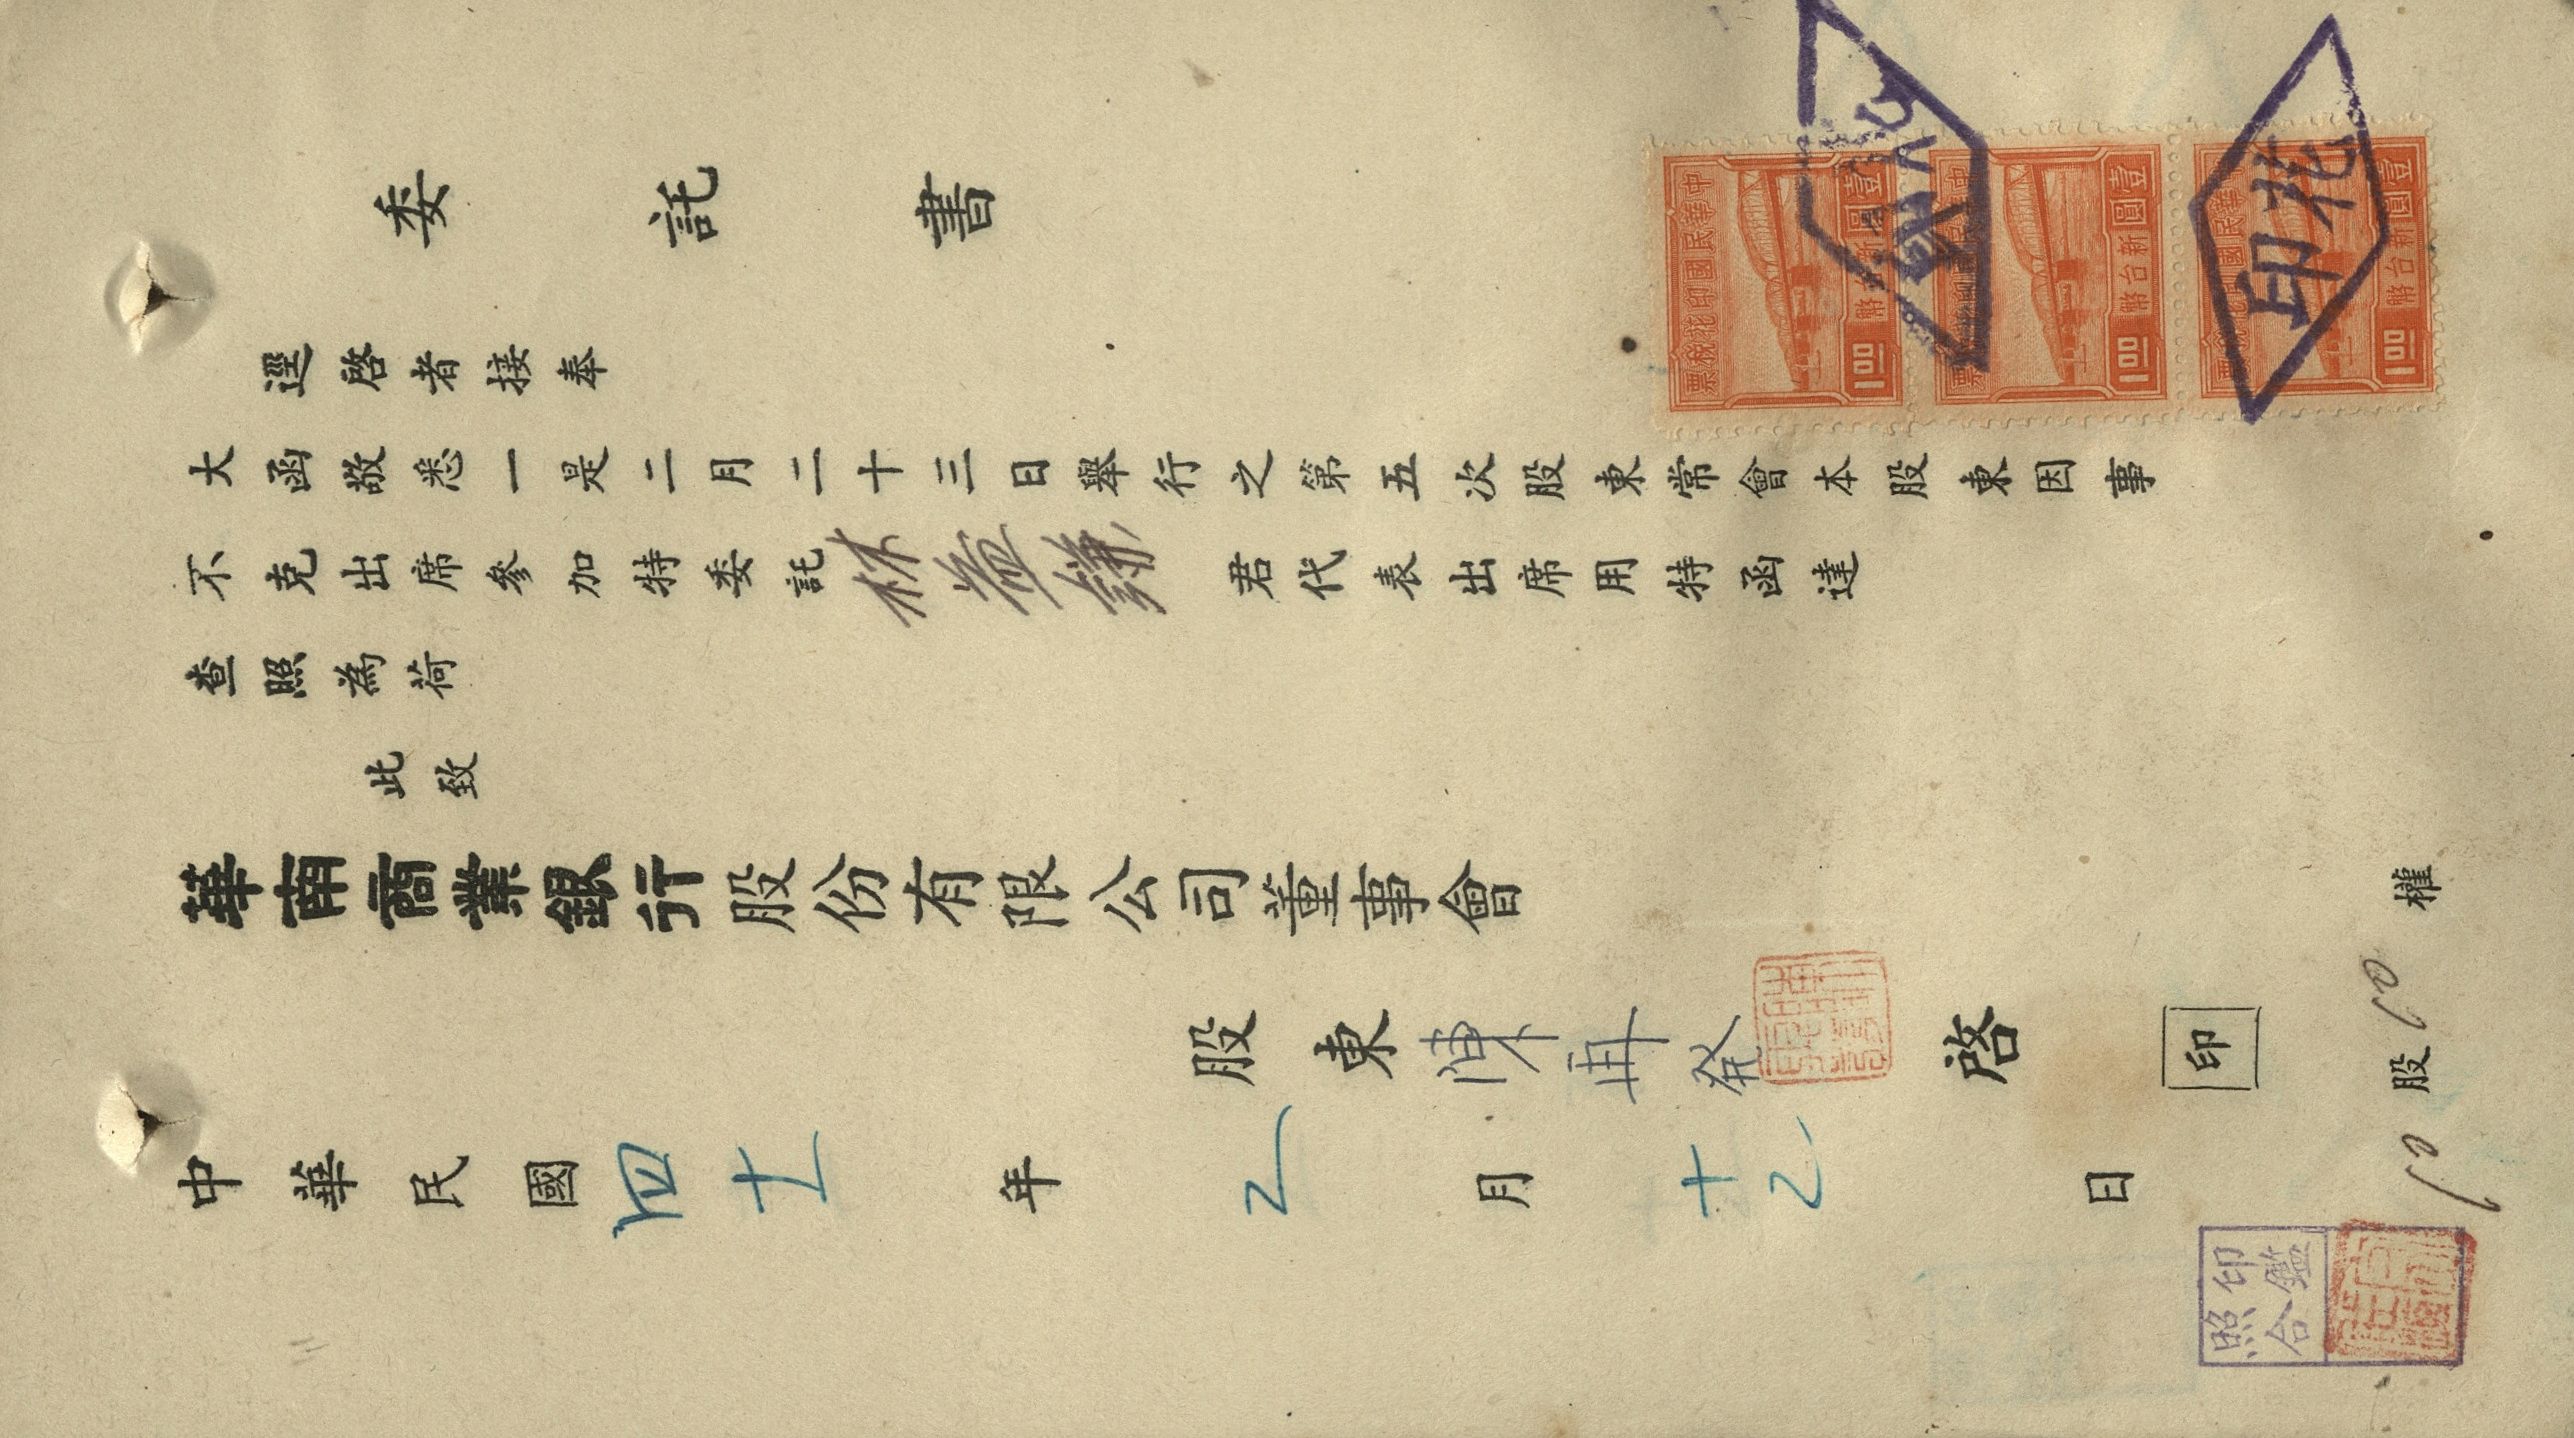 委託書
逕啓者接奉
大函敬悉一是二月二十三日舉行之第五次股東常會本股東因事
不克出席參加特委託林益謙君代表出席用特函達
查照為荷
此致
華南商業銀行股份有限公司董事會
股東陳再發啓 印
中華民國四十一年乙月十乙日
10股10權
中華民國印花稅票
壹圓
新台幣
1.00
中華民國印花稅票
壹圓
新台幣
1.00
中華民國印花稅票
壹圓
新台幣
1.00
印花
印鑑
照合